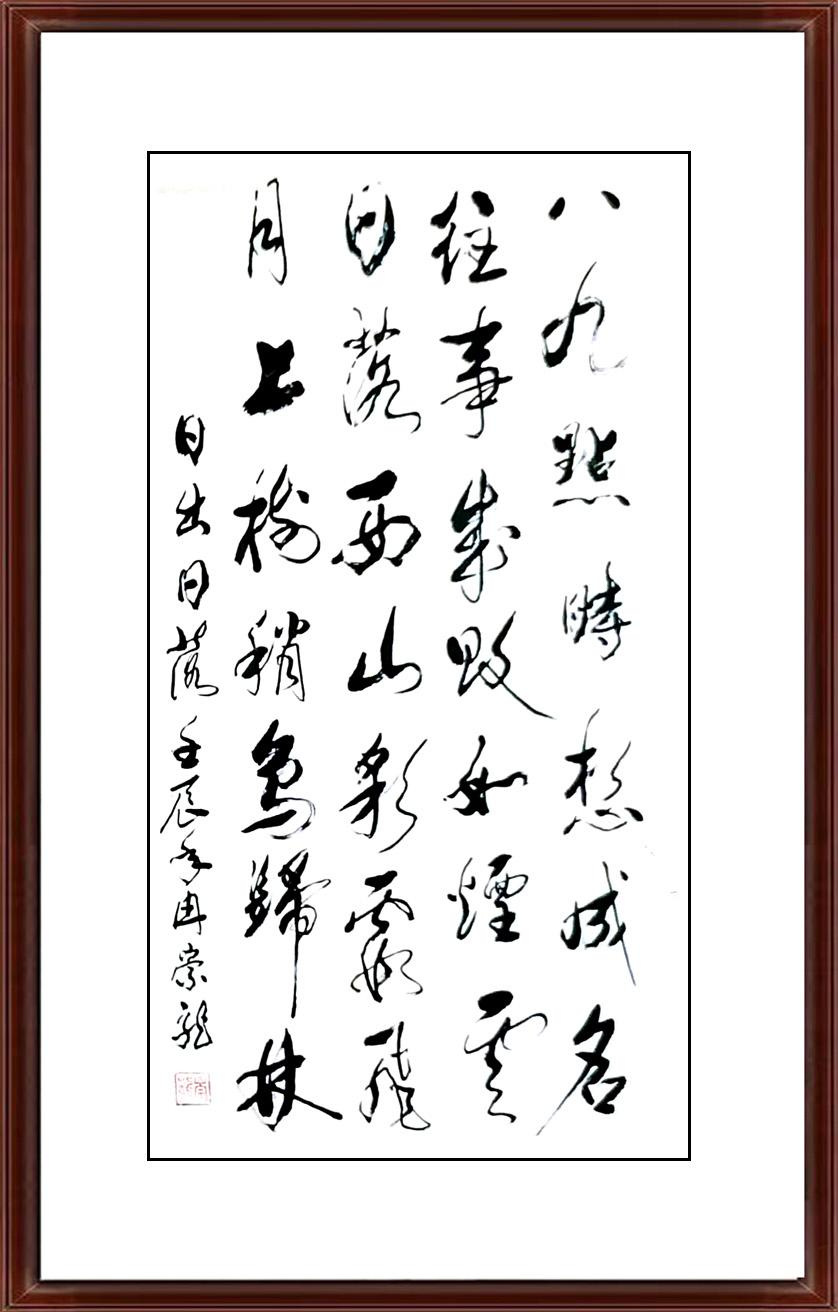 八九點時想成名
往事成敗如煙雲
日落西山彩霞飛
月上樹稍鳥歸林
日出日落壬辰年冉崇龍